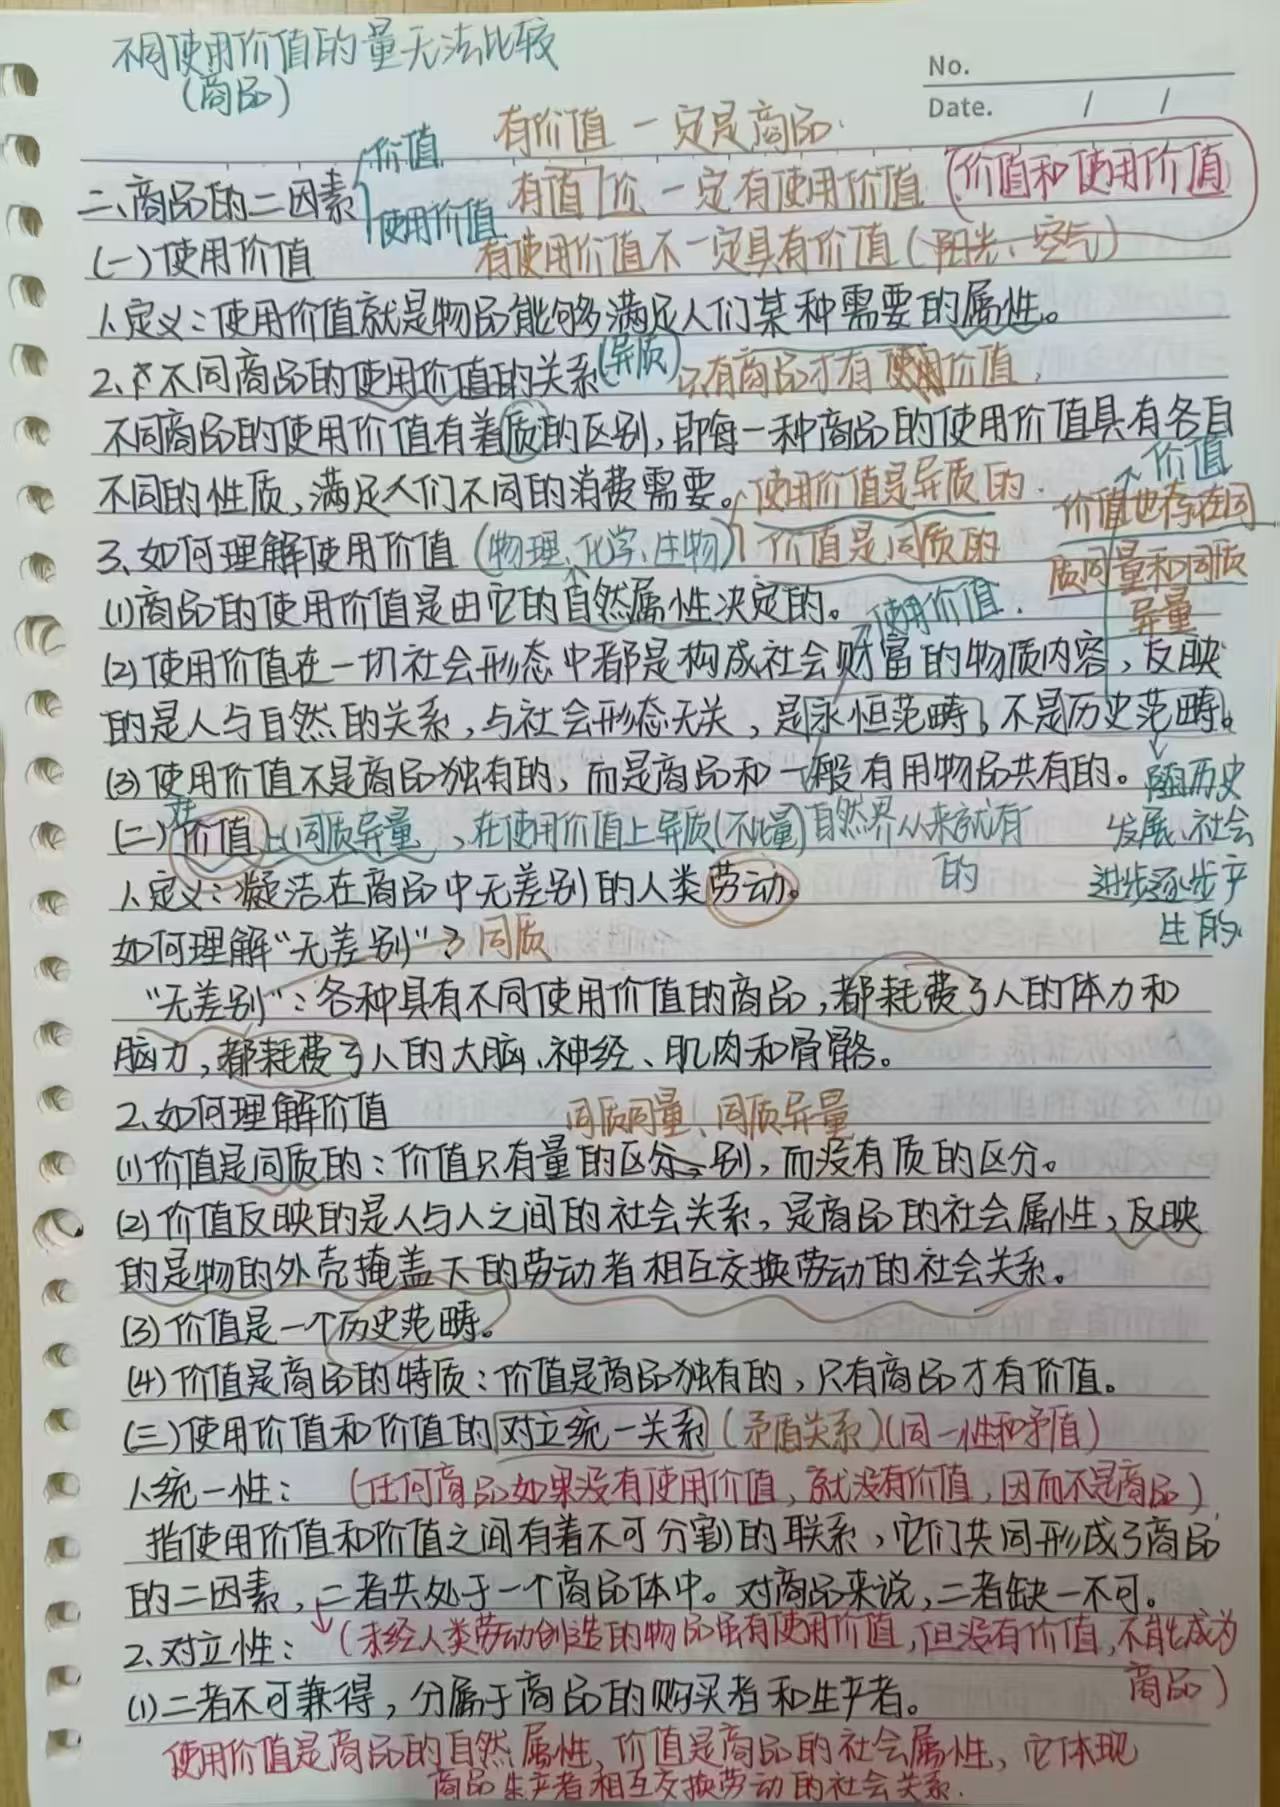 不同使用价值的量无法比较
(商品)
No.
Date. / /
有价值一定是商品.
价值
二、商品的二因素
使用价值
有值价一定有使用价值
价值和使用价值
(一)使用价值
有使用价值不一定具有价值(阳光、空气)
1、定义:使用价值就是物品能够满足人们某种需要的属性。
2、不同商品的使用价值的关系(异质)
只有商品才有价值
不同商品的使用价值有着质的区别,即每一种商品的使用价值具有各自
价值
不同的性质,满足人们不同的消费需要。
使用价值是异质的.
价值也存在同
3、如何理解使用价值(物理、化学、生物)
价值是同质的
质同量和同质
异量
(1)商品的使用价值是由它的自然属性决定的。
使用价值.
(2)使用价值在一切社会形态中都是构成社会财富的物质内容,反映
的是人与自然的关系,与社会形态无关,是永恒范畴,不是历史范畴。
(3)使用价值不是商品独有的,而是商品和一般有用物品共有的。
随历史
发展、社会
进步逐步产
生的.
(二)价值
在 上(同质异量),在使用价值上异质(不比量)
自然界从来就有
的
1、定义:凝结在商品中无差别的人类劳动。
如何理解“无差别”
同质
“无差别”:各种具有不同使用价值的商品,都耗费了人的体力和
脑力,都耗费了人的大脑、神经、肌肉和骨骼。
2、如何理解价值
同质同量、同质异量
(1)价值是同质的:价值只有量的区别,而没有质的区分。
(2)价值反映的是人与人之间的社会关系,是商品的社会属性,反映
的是物的外壳掩盖下的劳动者相互交换劳动的社会关系。
(3)价值是一个历史范畴。
(4)价值是商品的特质:价值是商品独有的,只有商品才有价值。
(三)使用价值和价值的对立统一关系(矛盾关系)(同一性和矛盾)
1、统一性: (任何商品如果没有使用价值,就没有价值,因而不是商品)
指使用价值和价值之间有着不可分割的联系,它们共同形成了商品
的二因素,二者共处于一个商品体中。对商品来说,二者缺一不可。
2、对立性: (未经人类劳动创造的物品虽有使用价值,但没有价值,不能成为
商品)
(1)二者不可兼得,分属于商品的购买者和生产者。
使用价值是商品的自然属性,价值是商品的社会属性,它体现
商品生产者相互交换劳动的社会关系.